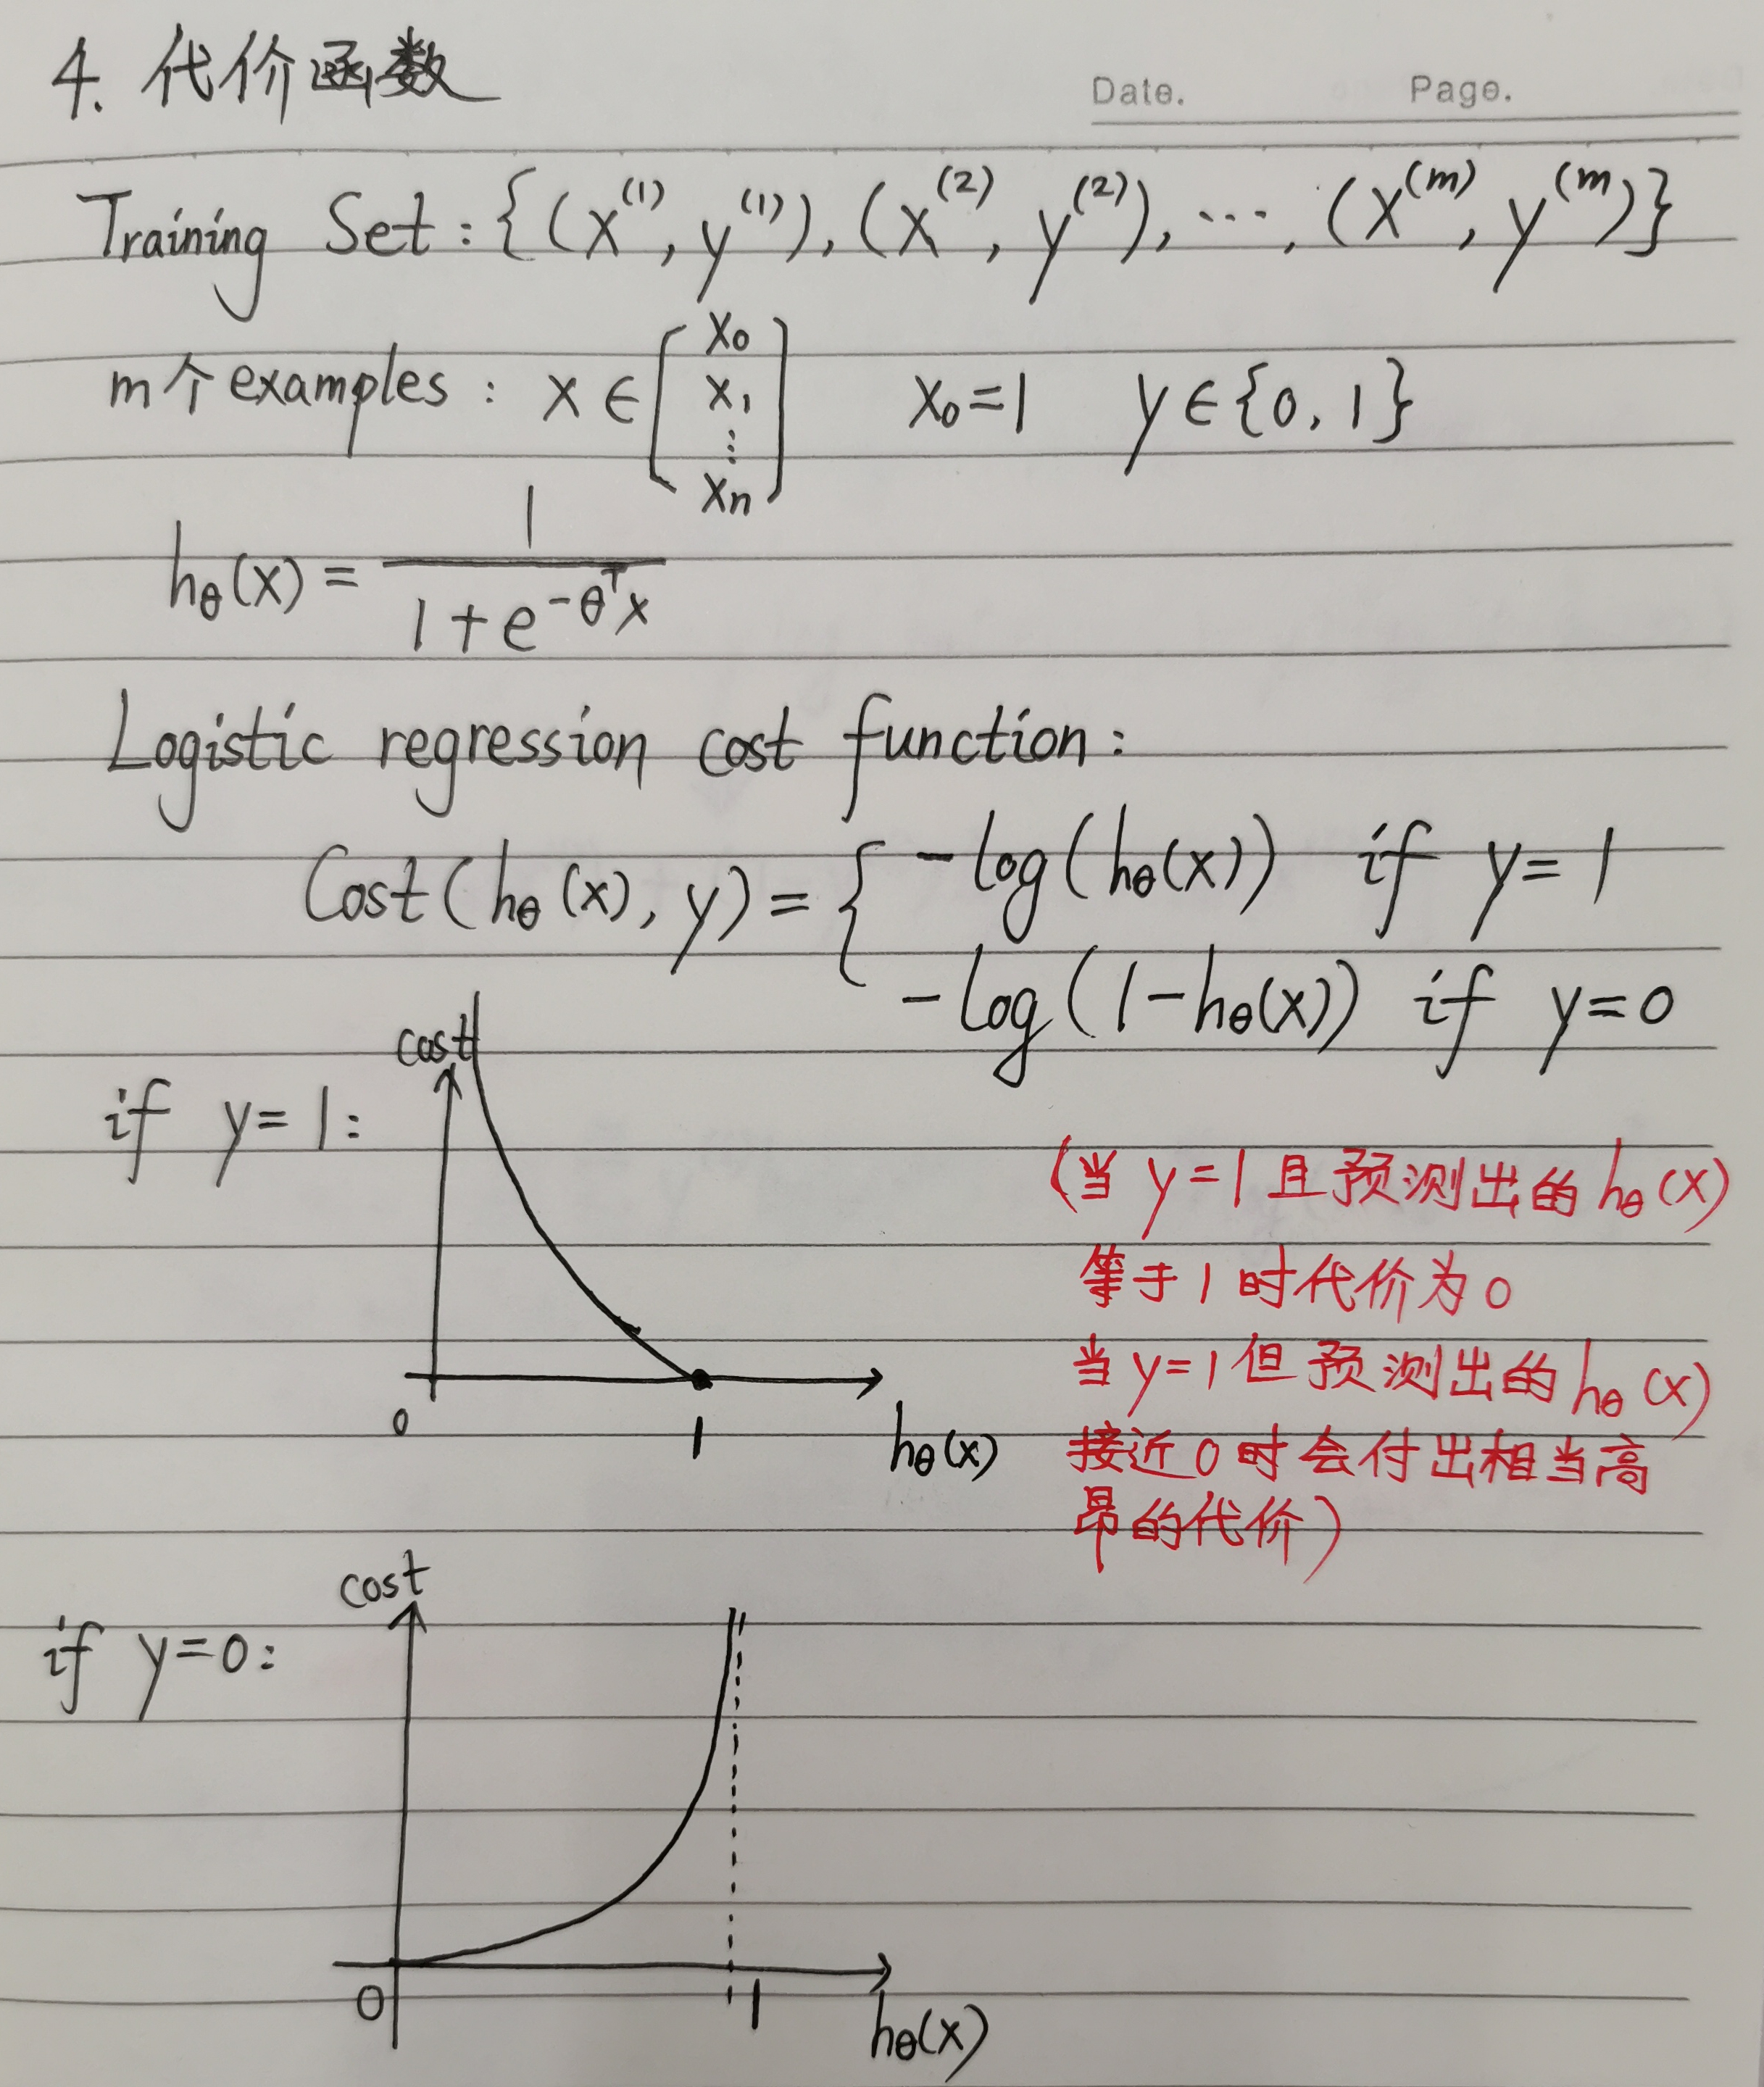 4. 代价函数
Date. Page.
Training Set: {(x⁽¹⁾, y⁽¹⁾), (x⁽²⁾, y⁽²⁾), ..., (x⁽ᵐ⁾, y⁽ᵐ⁾)}
m个examples: x ∈ [x₀ x₁ ⋮ xₙ] x₀=1 y∈{0, 1}
hθ(x) = 1 / (1+e^(-θᵀx))
Logistic regression cost function:
Cost(hθ(x), y) = { -log(hθ(x)) if y=1
-log(1-hθ(x)) if y=0
cost
if y=1:
0 1 hθ(x)
(当 y=1 且预测出的 hθ(x)
等于1时代价为0
当y=1但预测出的hθ(x)
接近0时会付出相当高
昂的代价)
cost
if y=0:
0 1 hθ(x)